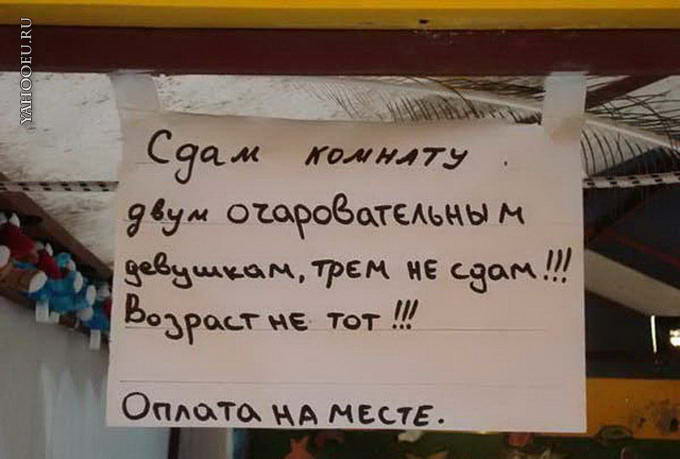 YAHOOEU.RU
Сдам комнату.
двум очаровательным
девушкам, трем не сдам!!!
Возраст не тот!!!
Оплата на месте.